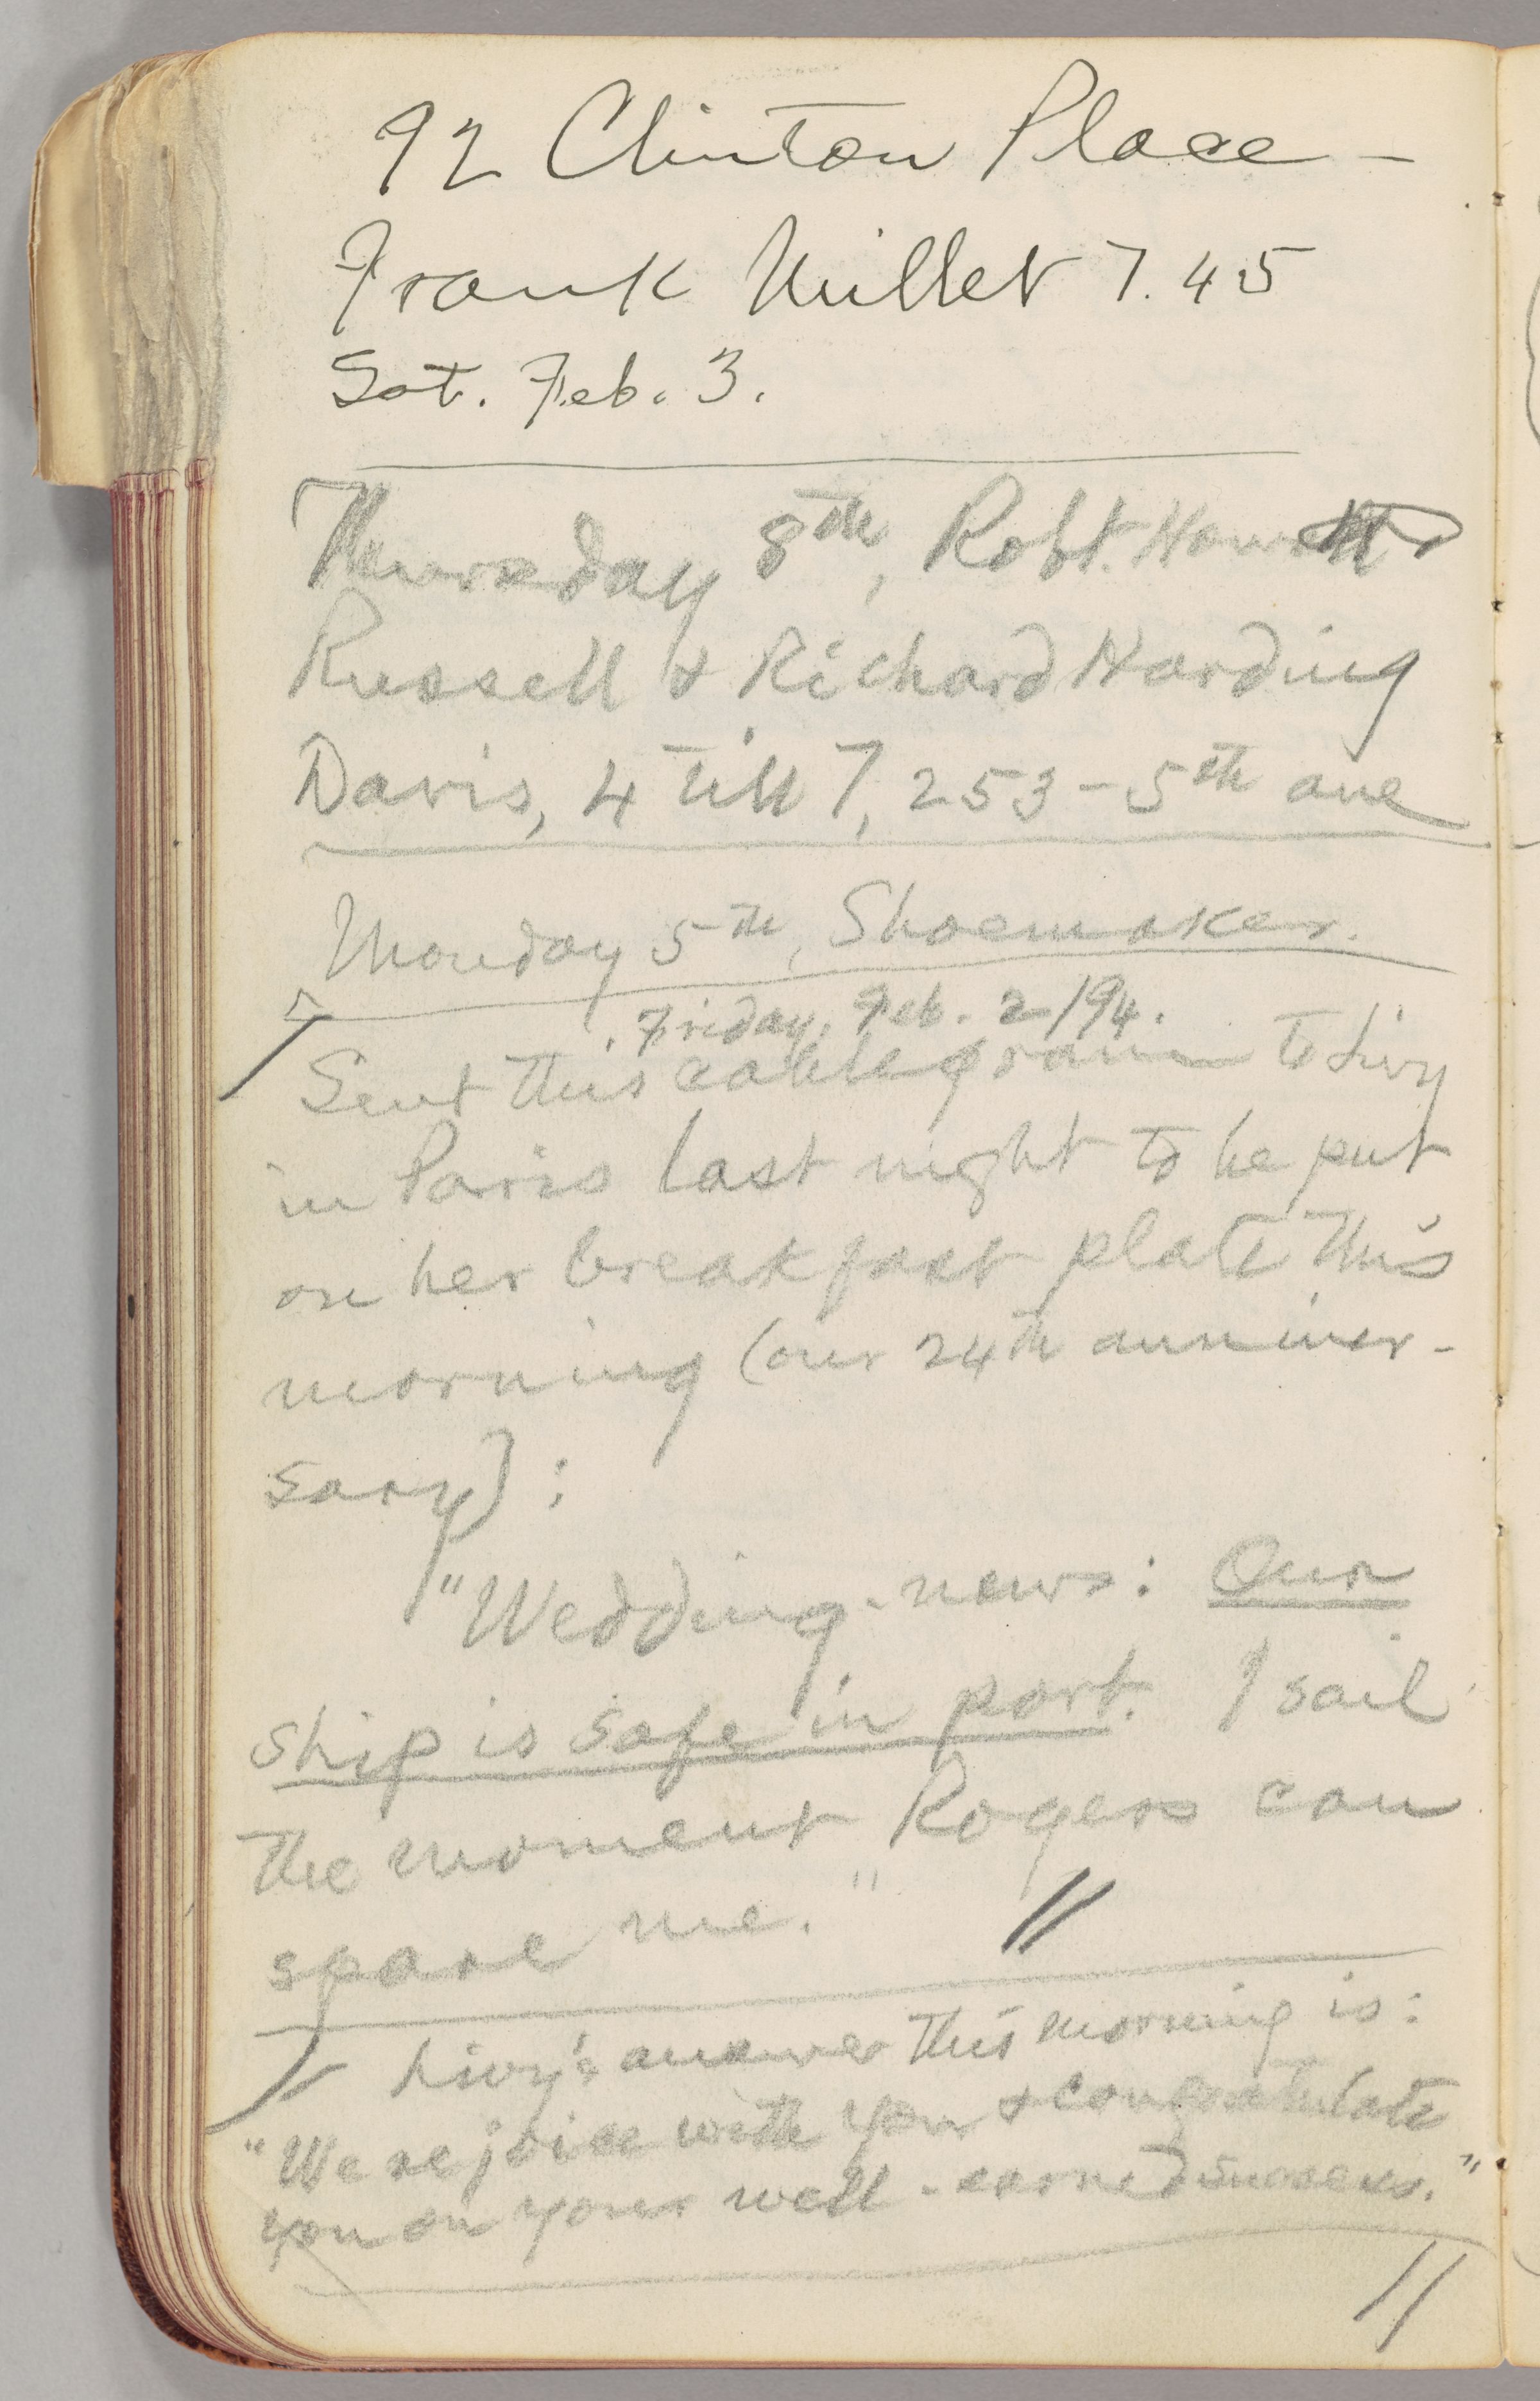 92 Clinton Place –
Frank Millet 7.45
Sat. Feb. 3.
Thursday 8th, Robt. Howard
Russell & Richard Harding
Davis, 4 till 7, 253 – 5th ave
Monday 5th, Shoemaker.
Friday, Feb. 2/94.
Sent this cablegram to Livy
in Paris last night to be put
on her breakfast plate this
morning (our 24th anniver-
sary):
"Wedding-news: Our
ship is safe in port. I sail
the moment Rogers can
spare me."
Livy's answer this morning is:
"We rejoice with you & congratulate
you on your well-earned success."